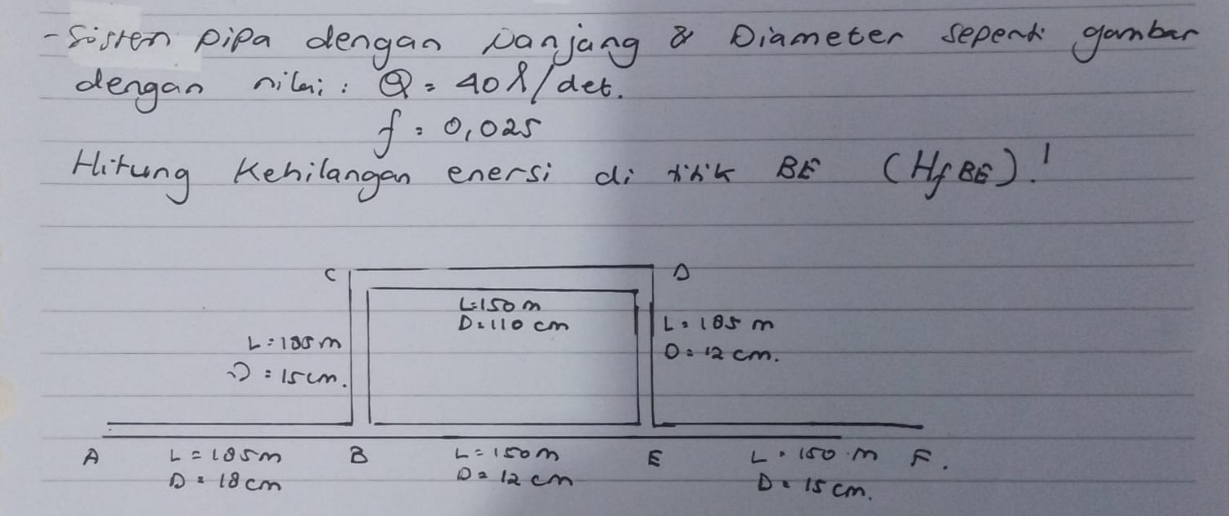 - Sistem pipa dengan panjang & Diameter seperti gambar
dengan nilai : Q = 40 l/det.
f = 0,025
Hitung Kehilangan enersi di titik BE (Hf BE) !
C D
L=150 m
D=110 cm
L = 185 m
D = 15 cm.
L = 185 m
D = 12 cm.
A B E F.
L = 185m
D = 18 cm
L = 150m
D = 12 cm
L = 150 m
D = 15 cm.